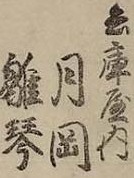 兵庫屋内
月岡
雛琴